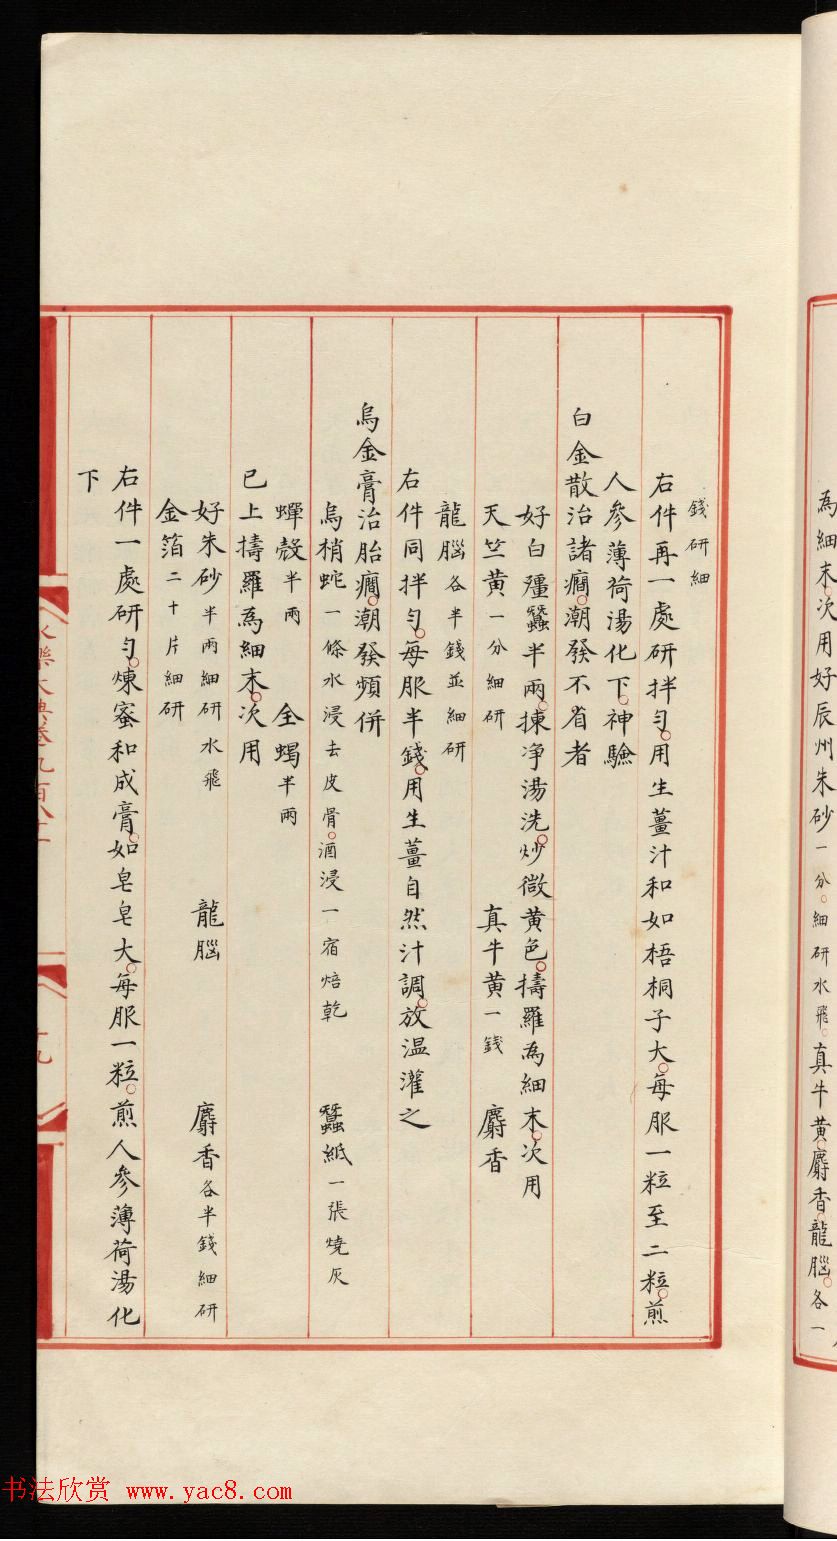 為細末次用好辰州朱砂一分細研水飛真牛黃麝香龍腦各一
錢研細
右件再一處研拌勻用生薑汁和如梧桐子大每服一粒至二粒煎
人參薄荷湯化下神驗
白金散治諸癎潮發不省者
好白殭蠶半兩揀净湯洗炒微黃色擣羅為細末次用
天竺黃一分細研 真牛黃一錢 麝香
龍腦各半錢並細研
右件同拌勻每服半錢用生薑自然汁調放温灌之
烏金膏治胎癎潮發頻併
烏梢蛇一條水浸去皮骨酒浸一宿焙乾 蠶紙一張燒灰
蟬殼半兩 全蝎半兩
已上擣羅為細末次用
好朱砂半兩細研水飛 龍腦 麝香各半錢細研
金箔二十片細研
右件一處研勻煉蜜和成膏如皂皂大每服一粒煎人參薄荷湯化
下
永樂大典卷九百八十一
十九
书法欣赏 www.yac8.com